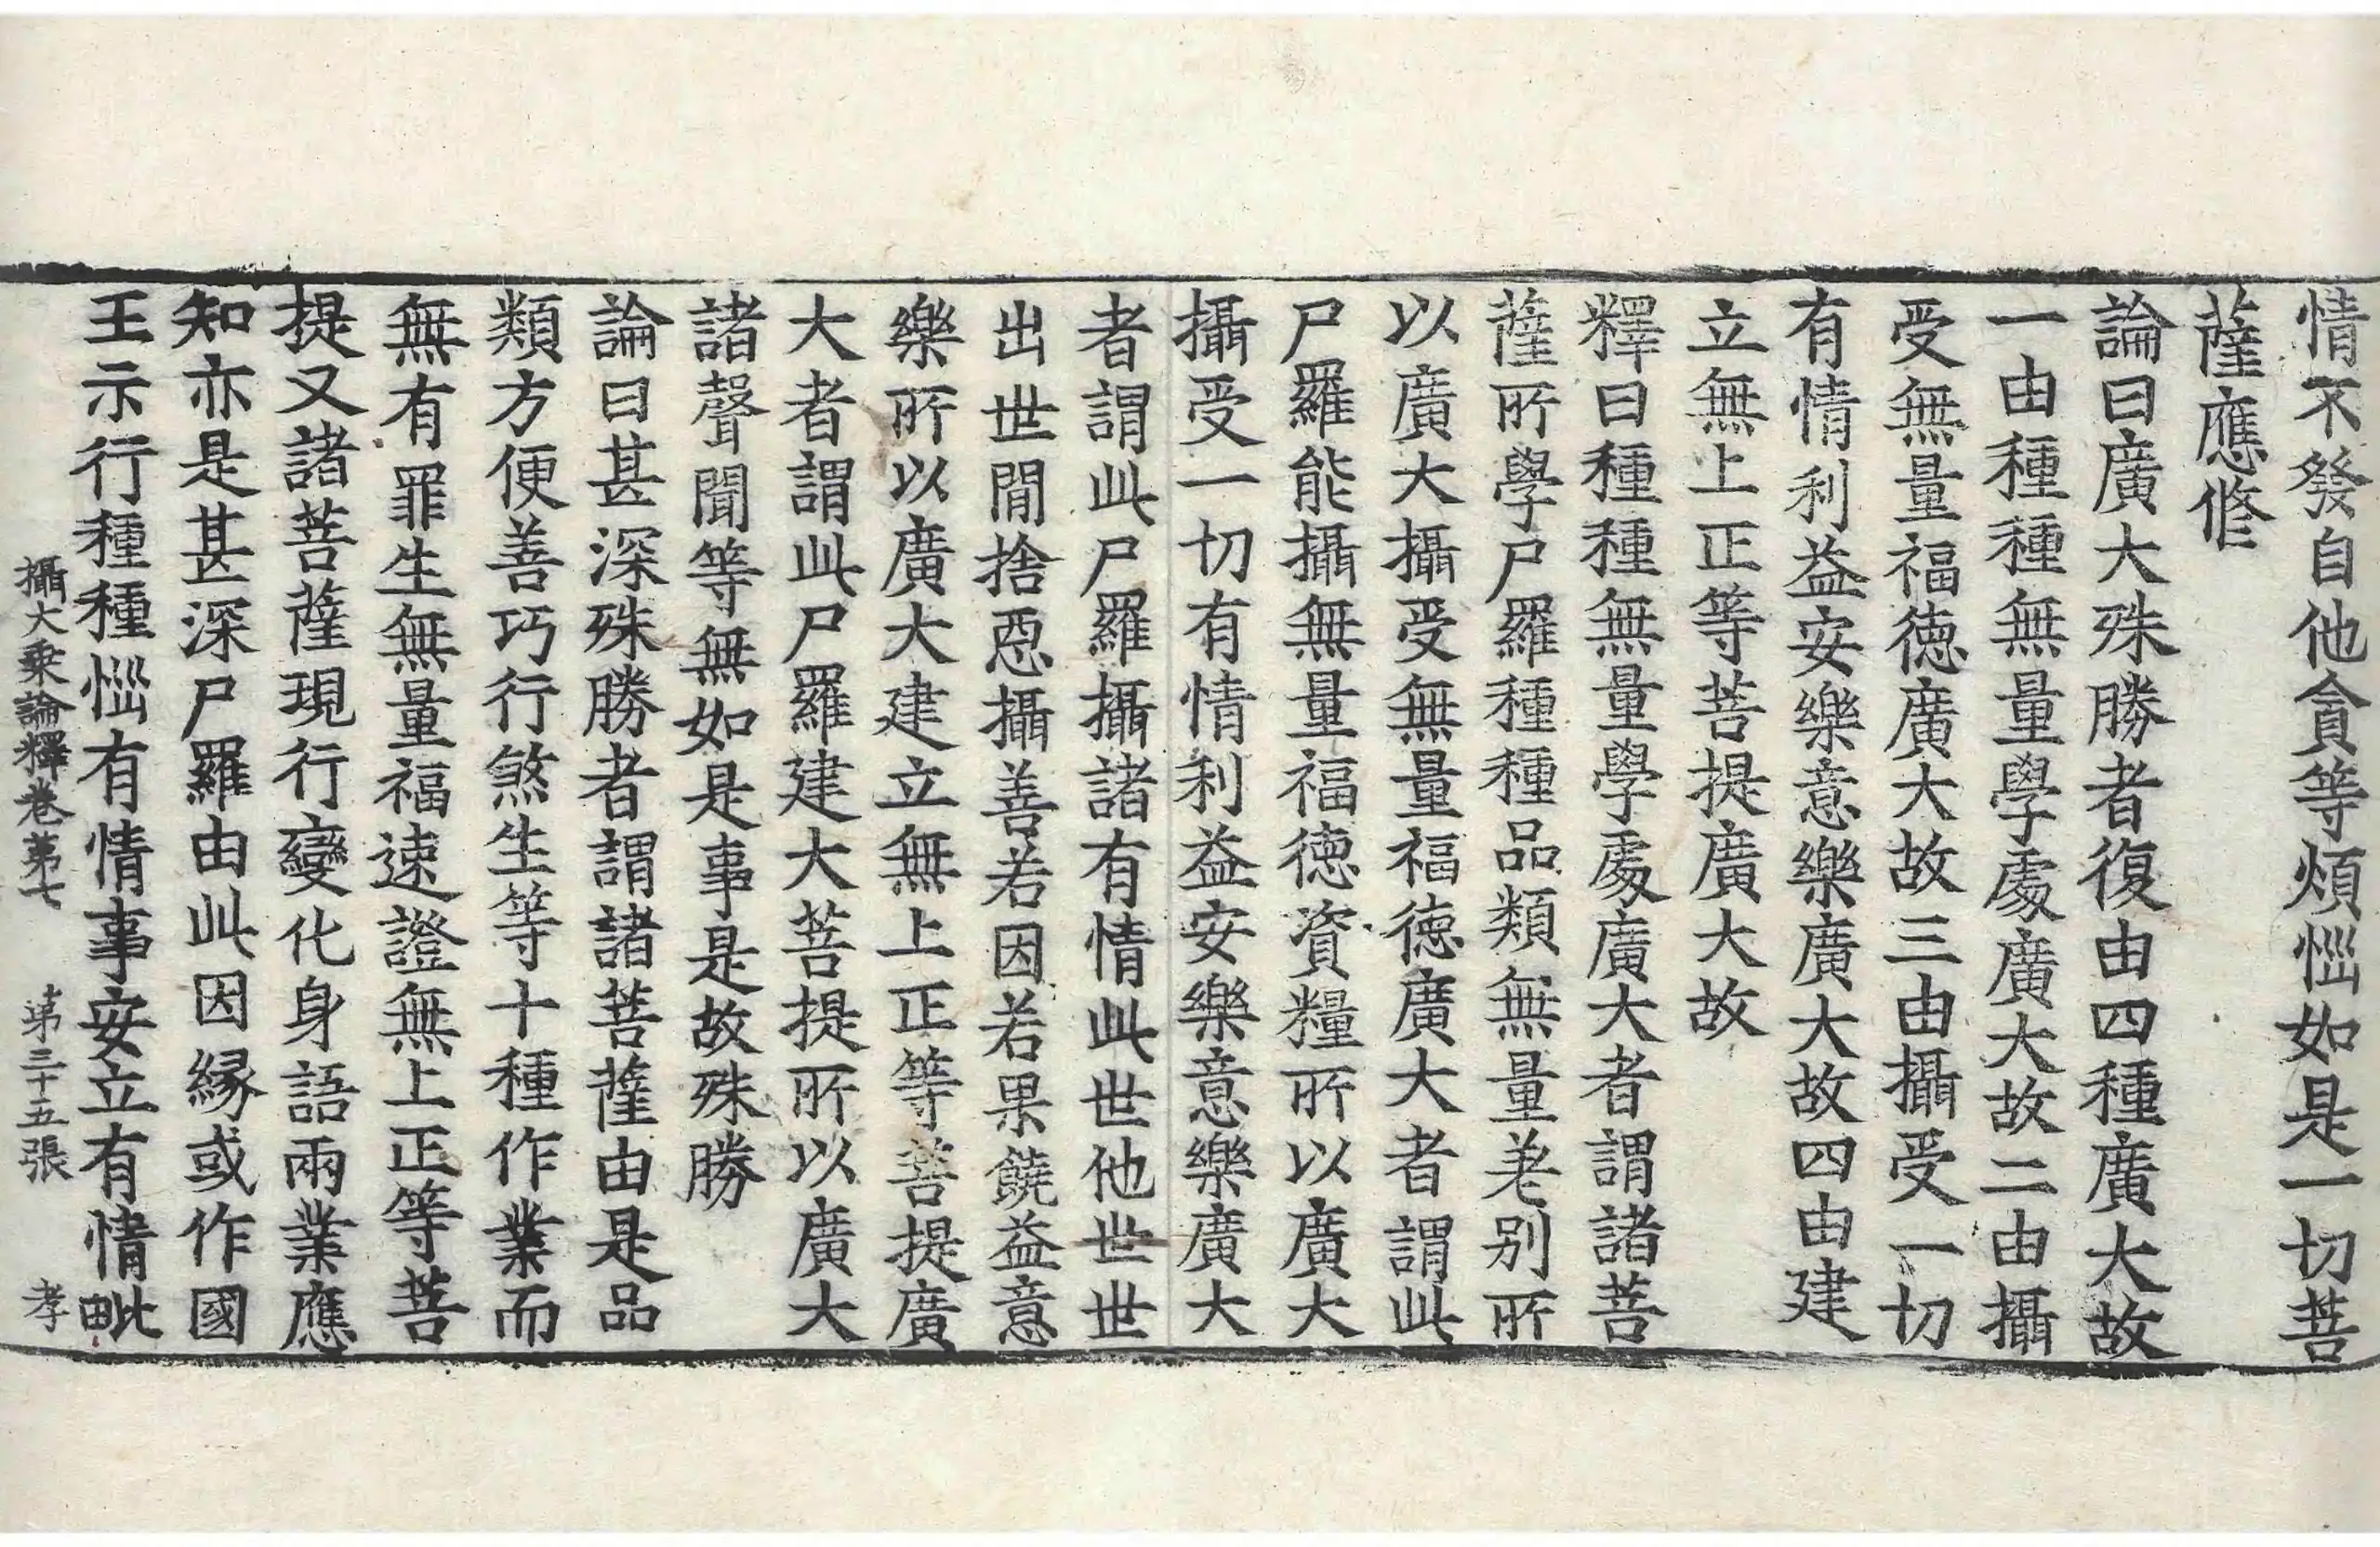 情不發自他貪等煩惱如是一切菩
薩應修
論曰廣大殊勝者復由四種廣大故
一由種種無量學處廣大故二由攝
受無量福德廣大故三由攝受一切
有情利益安樂意樂廣大故四由建
立無上正等菩提廣大故
釋曰種種無量學處廣大者謂諸菩
薩所學尸羅種種品類無量差别所
以廣大攝受無量福德廣大者謂此
尸羅能攝無量福德資糧所以廣大
攝受一切有情利益安樂意樂廣大
者謂此尸羅攝諸有情此世他世世
出世閒捨惡攝善若因若果饒益意
樂所以廣大建立無上正等菩提廣
大者謂此尸羅建大菩提所以廣大
諸聲聞等無如是事是故殊勝
論曰甚深殊勝者謂諸菩薩由是品
類方便善巧行煞生等十種作業而
無有罪生無量福速證無上正等菩
提又諸菩薩現行變化身語兩業應
知亦是甚深尸羅由此因緣或作國
王示行種種惱有情事安立有情毗
攝大乘論釋卷苐七 苐三十五張 孝